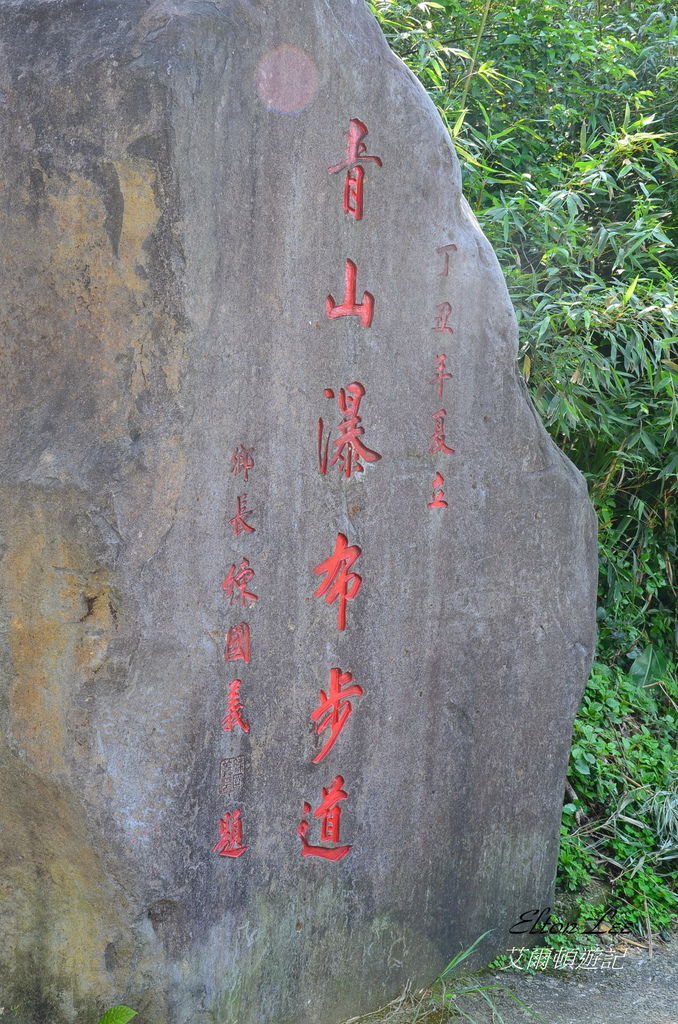 丁丑年夏立
青山瀑布步道
鄉長陳國義題
Elton Lee
艾爾頓遊記